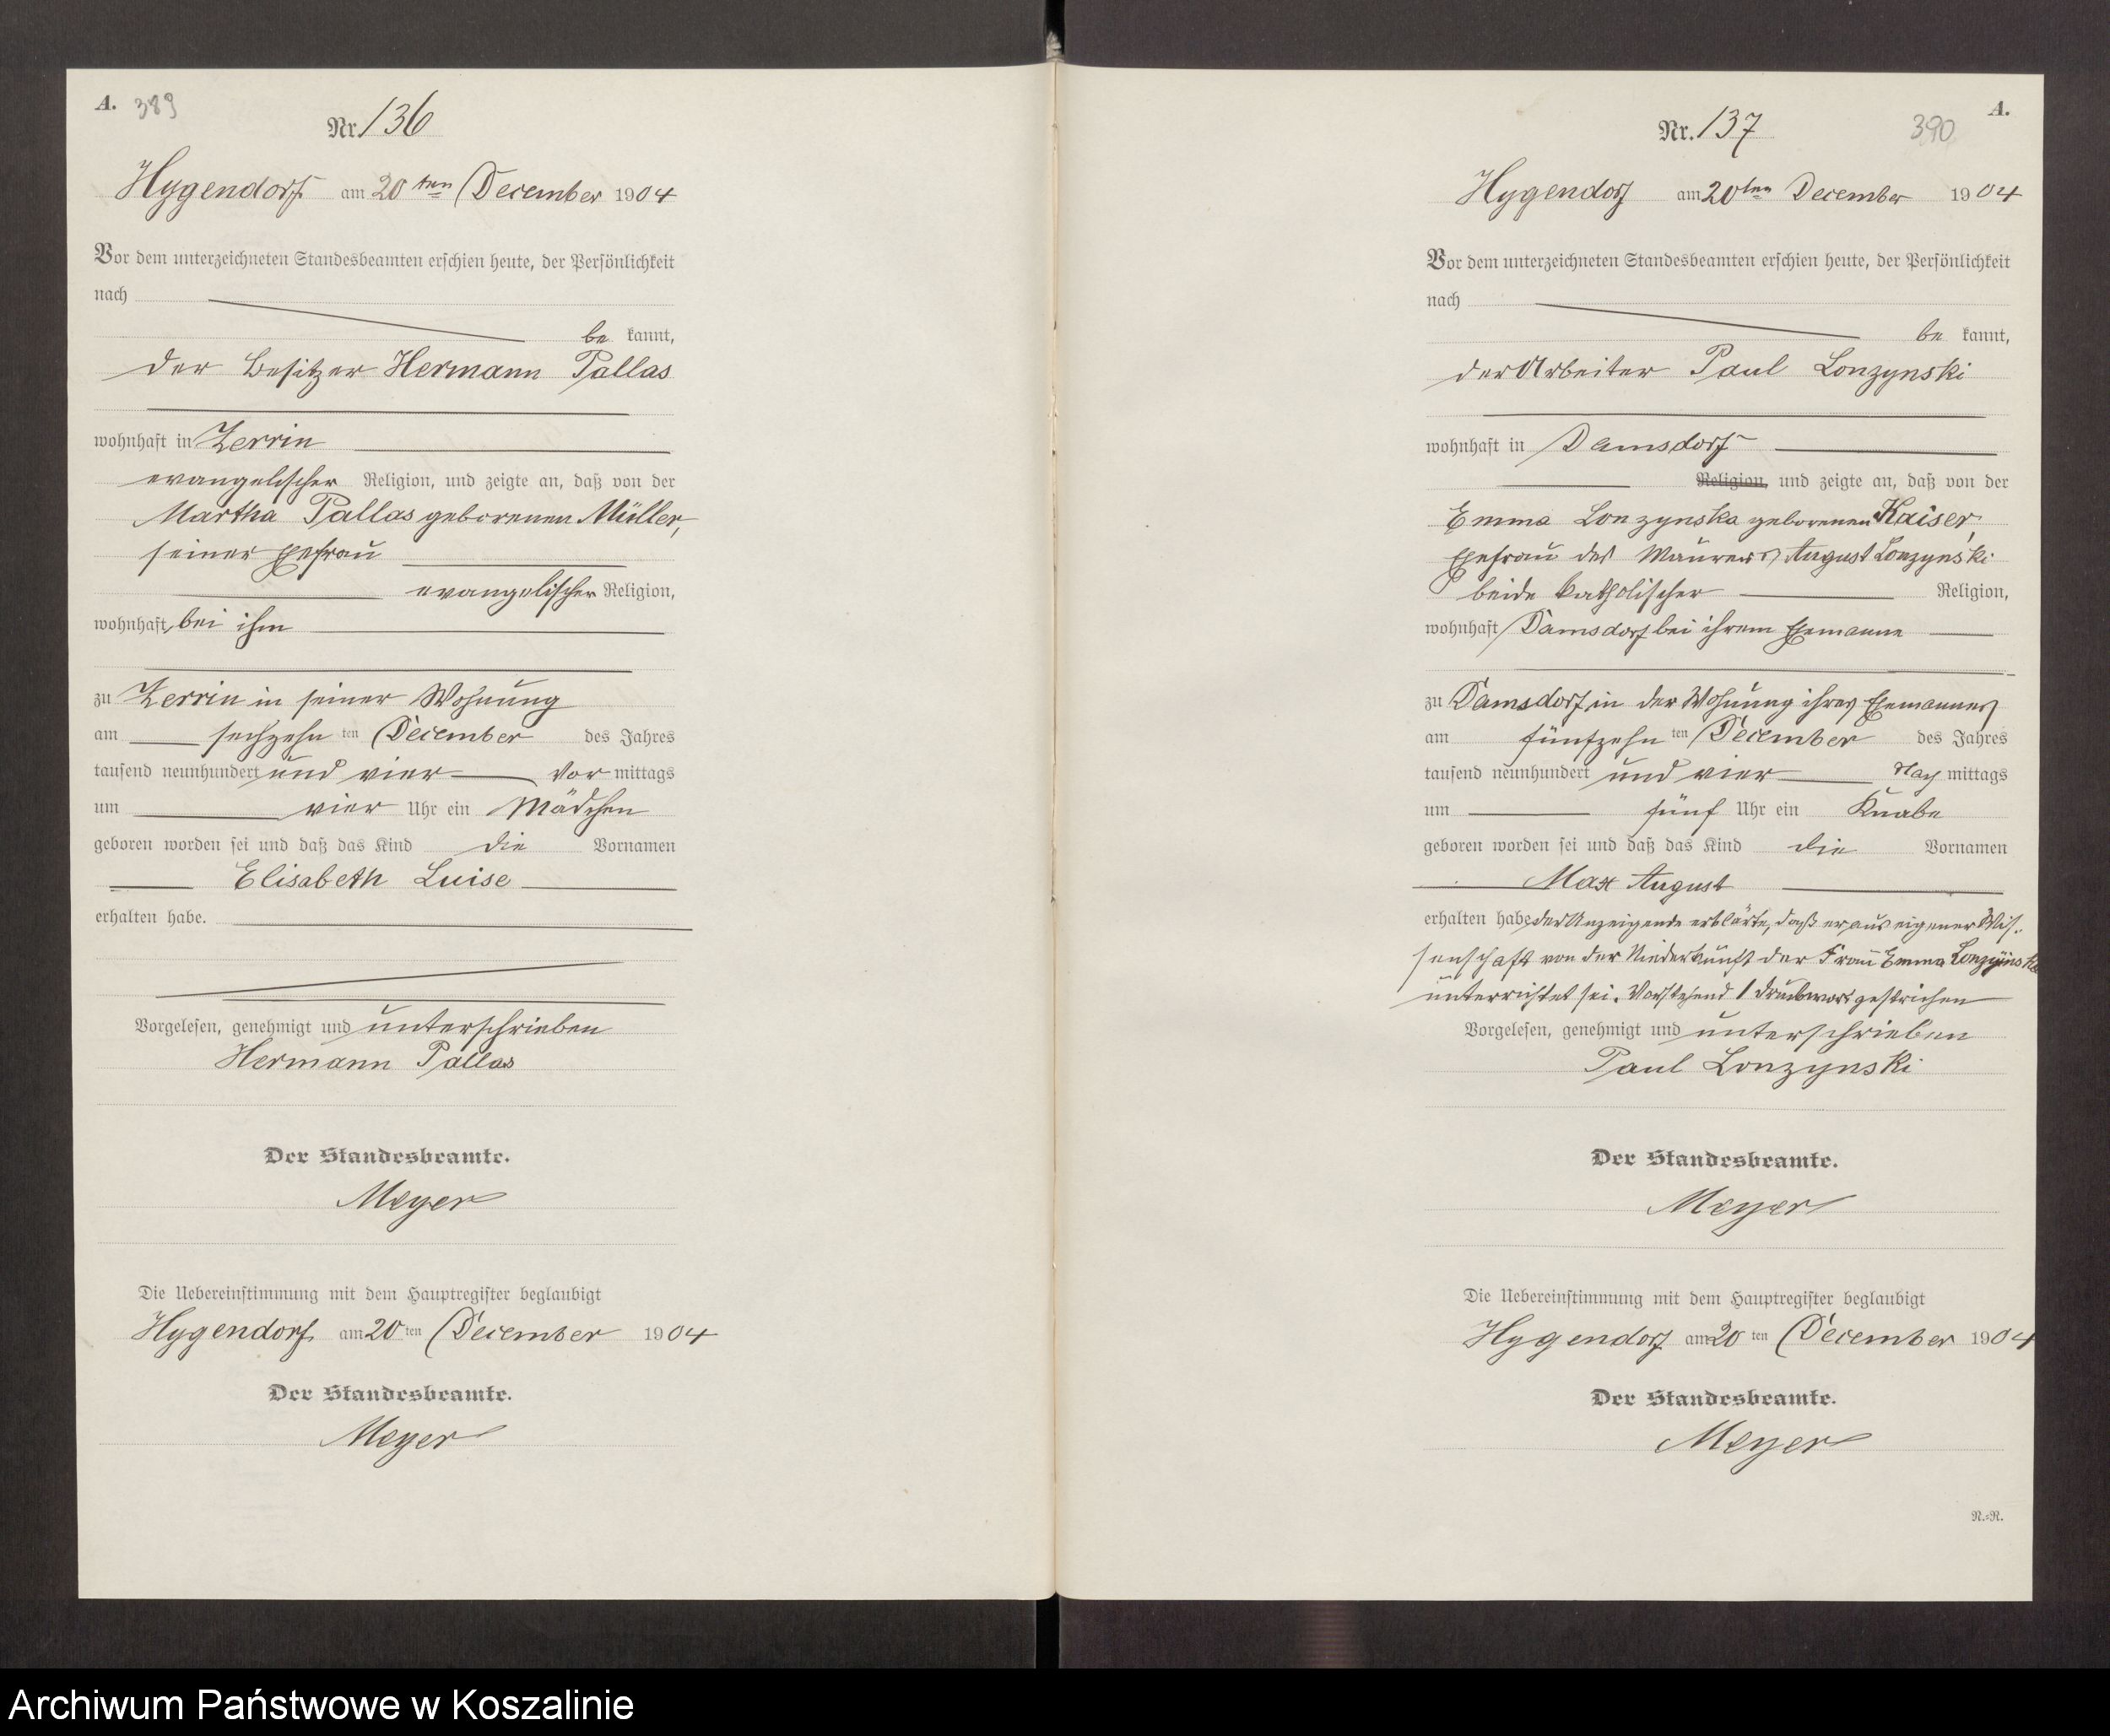 A. 389
Nr. 136
Hygendorf am 20ten December 1904
Vor dem unterzeichneten Standesbeamten erschien heute, der Persönlichkeit
nach
be kannt,
der Besitzer Hermann Pallas
wohnhaft in Zerrin
evangelischer Religion, und zeigte an, daß von der
Martha Pallas geborenen Müller,
seiner Ehefrau
evangelischer Religion,
wohnhaft bei ihm
zu Zerrin in seiner Wohnung
am sechzehn ten December des Jahres
tausend neunhundert und vier Vor mittags
um vier Uhr ein Mädchen
geboren worden sei und daß das Kind die Vornamen
Elisabeth Luise
erhalten habe.
Vorgelesen, genehmigt und unterschrieben
Hermann Pallas
Der Standesbeamte.
Meyer
Die Uebereinstimmung mit dem Hauptregister beglaubigt
Hygendorf am 20 ten December 1904
Der Standesbeamte.
Meyer
A.
Nr. 137 390
Hygendorf am 20ten December 1904
Vor dem unterzeichneten Standesbeamten erschien heute, der Persönlichkeit
nach
be kannt,
der Arbeiter Paul Lonzynski
wohnhaft in Damsdorf
Religion, und zeigte an, daß von der
Emma Lonzynska geborenen Kaiser,
Ehefrau des Maurers August Lonzynski
beide katholischer Religion,
wohnhaft Damsdorf bei ihrem Ehemanne
zu Damsdorf in der Wohnung ihres Ehemannes
am fünfzehn ten December des Jahres
tausend neunhundert und vier Nach mittags
um fünf Uhr ein Knabe
geboren worden sei und daß das Kind die Vornamen
Max August
erhalten habe der Anzeigende erklärte, daß er aus eigener Wis-
senschaft von der Niederkunft der Frau Emma Lonzynska
unterrichtet sei. Vorstehend 1 Druckwort gestrichen
Vorgelesen, genehmigt und unterschrieben
Paul Lonzynski
Der Standesbeamte.
Meyer
Die Uebereinstimmung mit dem Hauptregister beglaubigt
Hygendorf am 20 ten December 1904
Der Standesbeamte.
Meyer
N.-N.
Archiwum Państwowe w Koszalinie